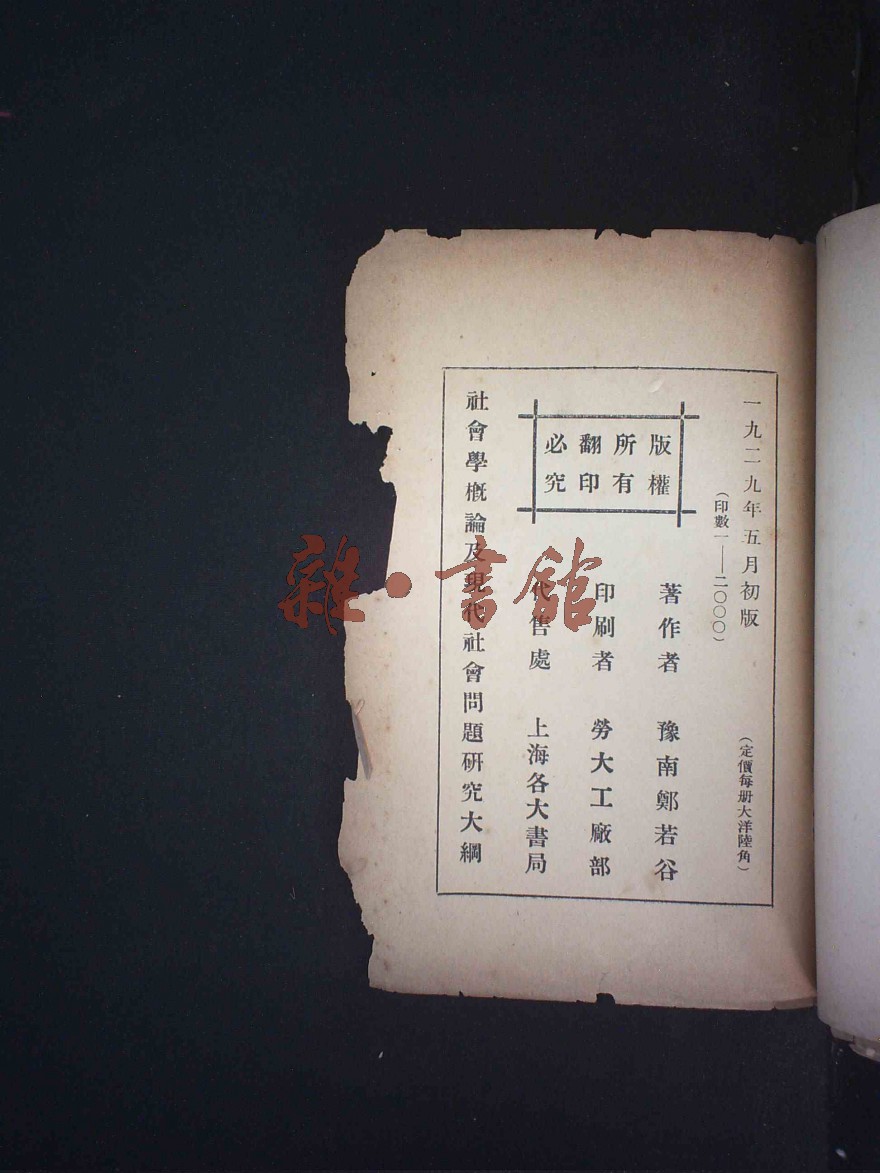 一九二九年五月初版
(定價每册大洋陸角)
(印數一——二〇〇〇)
版權
所有
翻印
必究
著作者 豫南鄭若谷
印刷者 勞大工廠部
代售處 上海各大書局
社會學概論及現代社會問題研究大綱
雜·書館